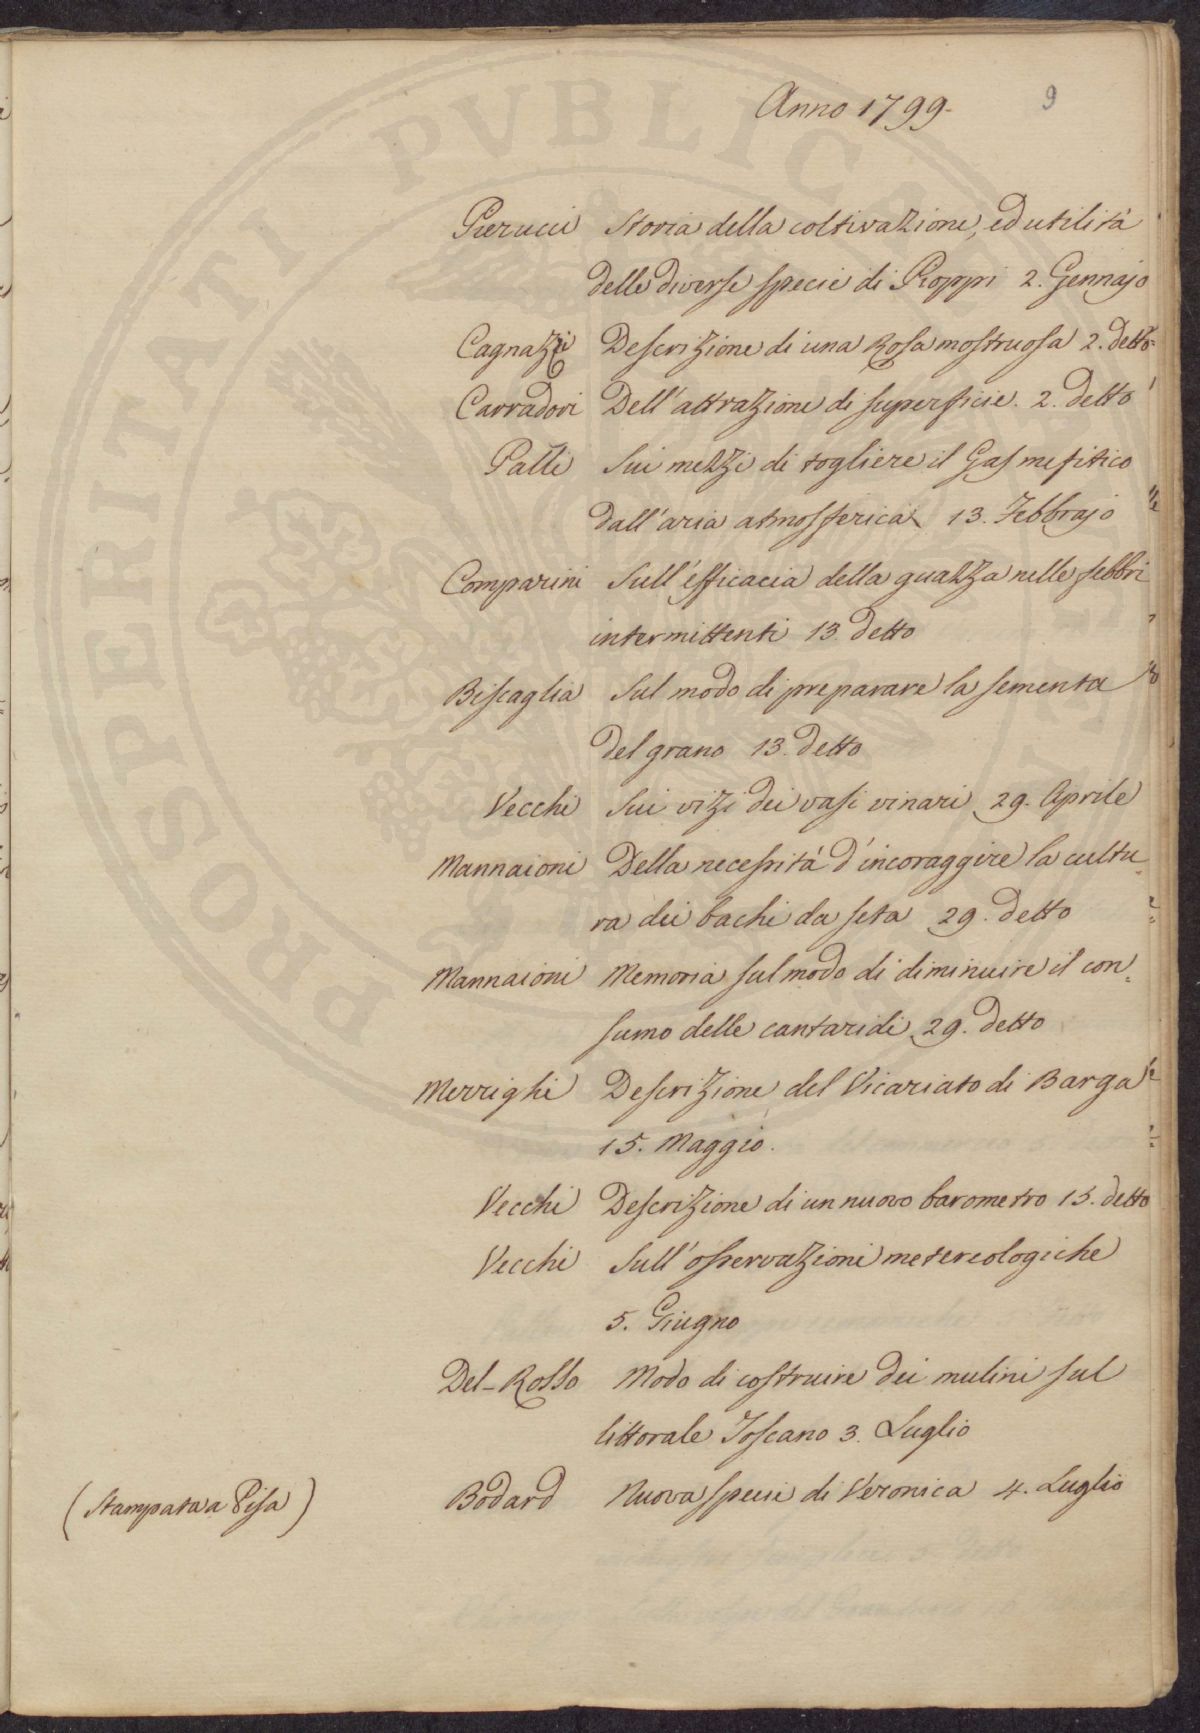 Anno 1799.
9
Pierucci Storia della coltivazione, ed utilità
delle diverse specie di Pioppi 2. Gennajo
Cagnazzi Descrizione di una Rosa mostruosa 2. detto
Carradori Dell'attrazione di superficie. 2. detto
Patti Sui mezzi di togliere il Gas mefitico
dall'aria atmosferica 13. Febbrajo
Comparini Sull'efficacia della guazza nelle febbri
intermittenti 13 detto
Biscaglia Sul modo di preparare la sementa
del grano 13. detto
Vecchi Sui vizi dei vasi vinari 29. Aprile
Mannaioni Della necessità d'incoraggire la cultu
ra dei bachi da seta 29. detto
Mannaioni Memoria sul modo di diminuire il con
sumo delle cantaridi 29. detto
Merrighi Descrizione del Vicariato di Barga
15. Maggio.
Vecchi Descrizione di un nuovo barometro 15. detto
Vecchi Sull'osservazioni metereologiche
5. Giugno
Del-Rosso Modo di costruire dei mulini sul
littorale Toscano 3. Luglio
(Stampata a Pisa) Bodard Nuova specie di Veronica 4. Luglio
PROSPERITATI PVBLICAE